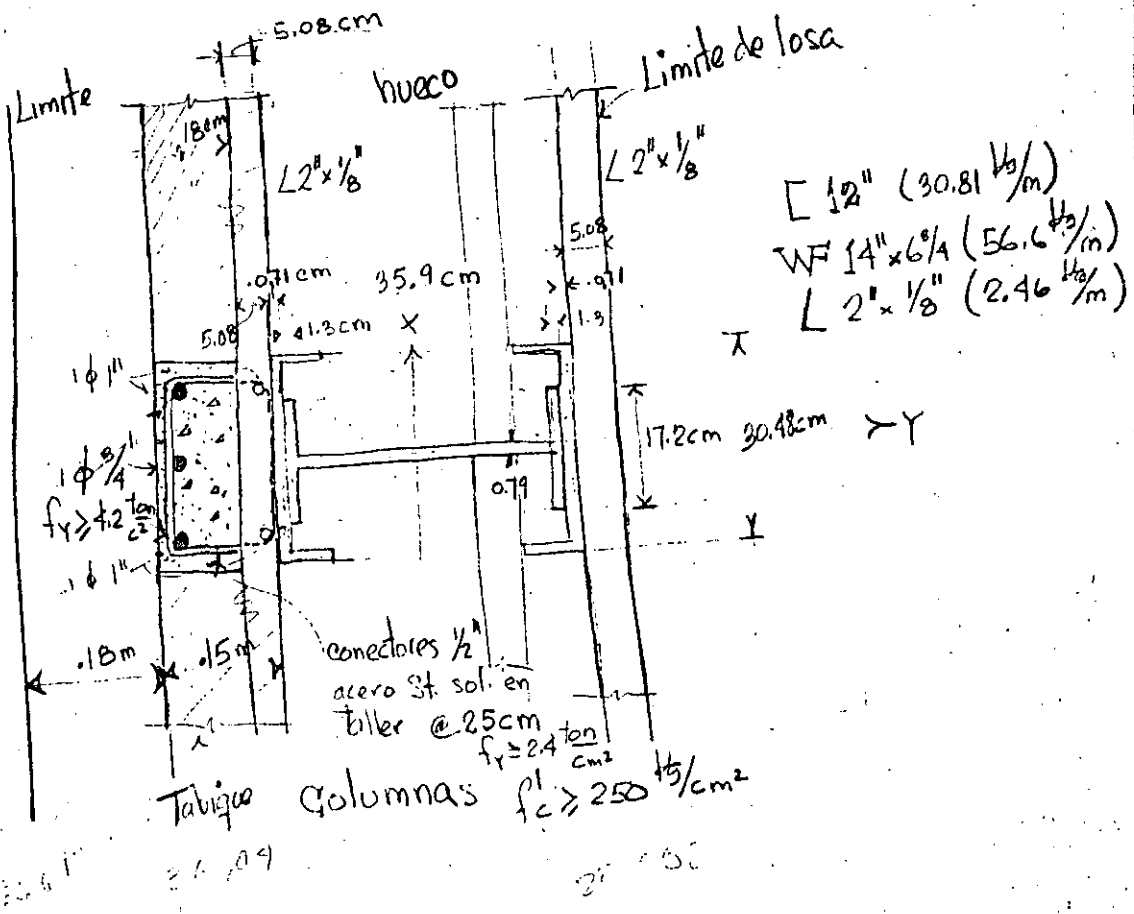 5.08 cm
Limite
hueco
Limite de losa
18cm
L2"x1/8"
L2"x1/8"
[ 12" (30.81 kg/m)
WF 14"x6 3/4 (56.6 kg/m)
L 2"x 1/8" (2.46 kg/m)
5.08
.071cm
35.9 cm
.071
5.08
1.3cm
X
1.3
1 φ 1"
17.2cm
30.48cm
Y
1 φ 3/4"
0.79
fy ≥ 4.2 ton/c²
1 φ 1"
.18m
.15m
conectores 1/2"
acero St. sol. en
taller @ 25cm
fy ≥ 2.4 ton/cm²
Tabique
Columnas
f'c ≥ 250 kg/cm²